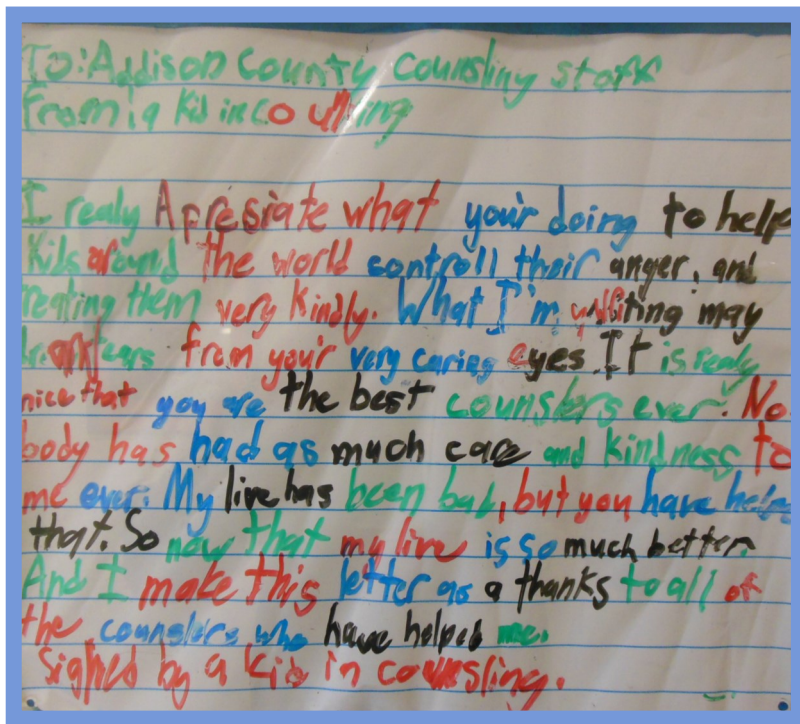 To: Addison County Counsling staff
From: a kid in counsling
I realy Apresiate what your'r doing to help
kids around the world controll their anger, and
treating them very kindly. What I'm writing may
tears from your'r very caring eyes It is realy
nice that you are the best counslers ever. No
body has had as much care and kindness to
me ever. My live has been bad, but you have helped
that. So now that my live is so much better
And I make this letter as a thanks to all of
the counslers who have helped me.
Signed by a kid in counsling.